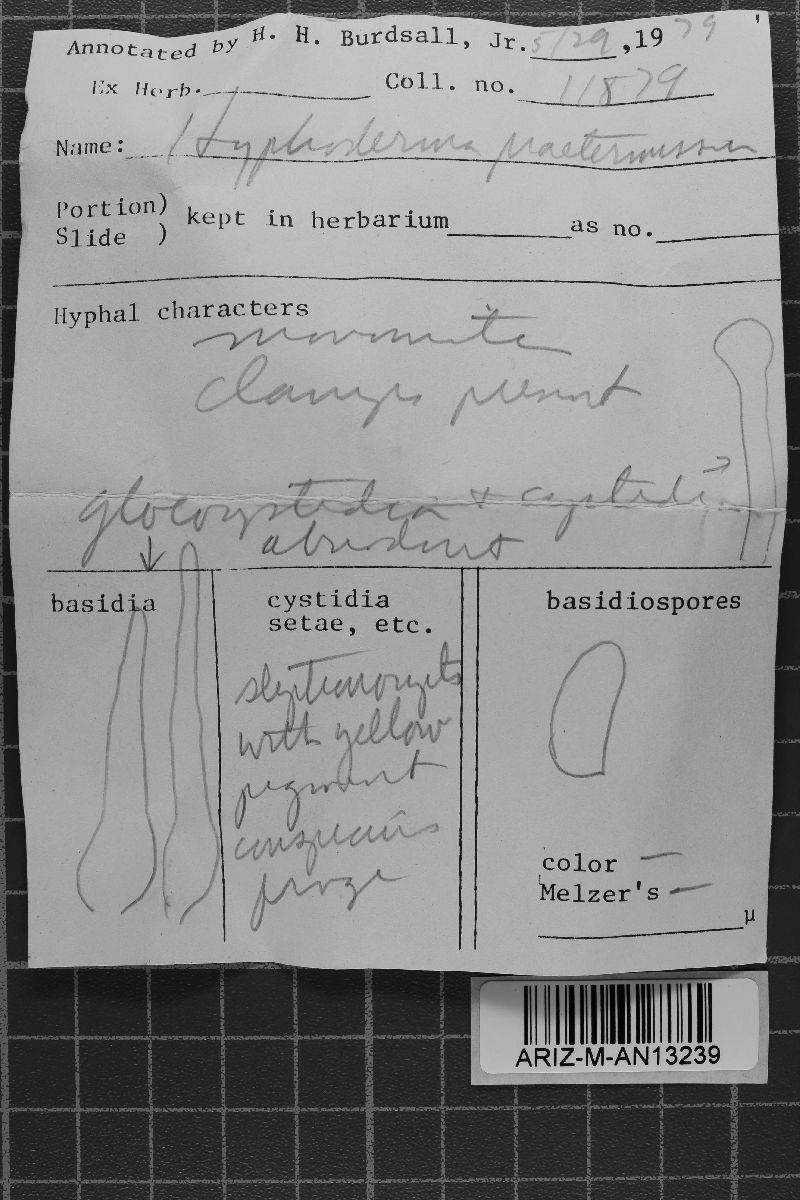 Annotated by H. H. Burdsall, Jr. 5/29, 1979
Ex Herb. Coll. no. 11879
Name: Hyphoderma praetermissum
Portion)
Slide ) kept in herbarium as no.
Hyphal characters
monomitic
clamps present
gloeocystidia + cystidia →
abundant
↓
basidia
cystidia
setae, etc.
with yellow
pigment
basidiospores
color —
Melzer's —
µ
ARIZ-M-AN13239